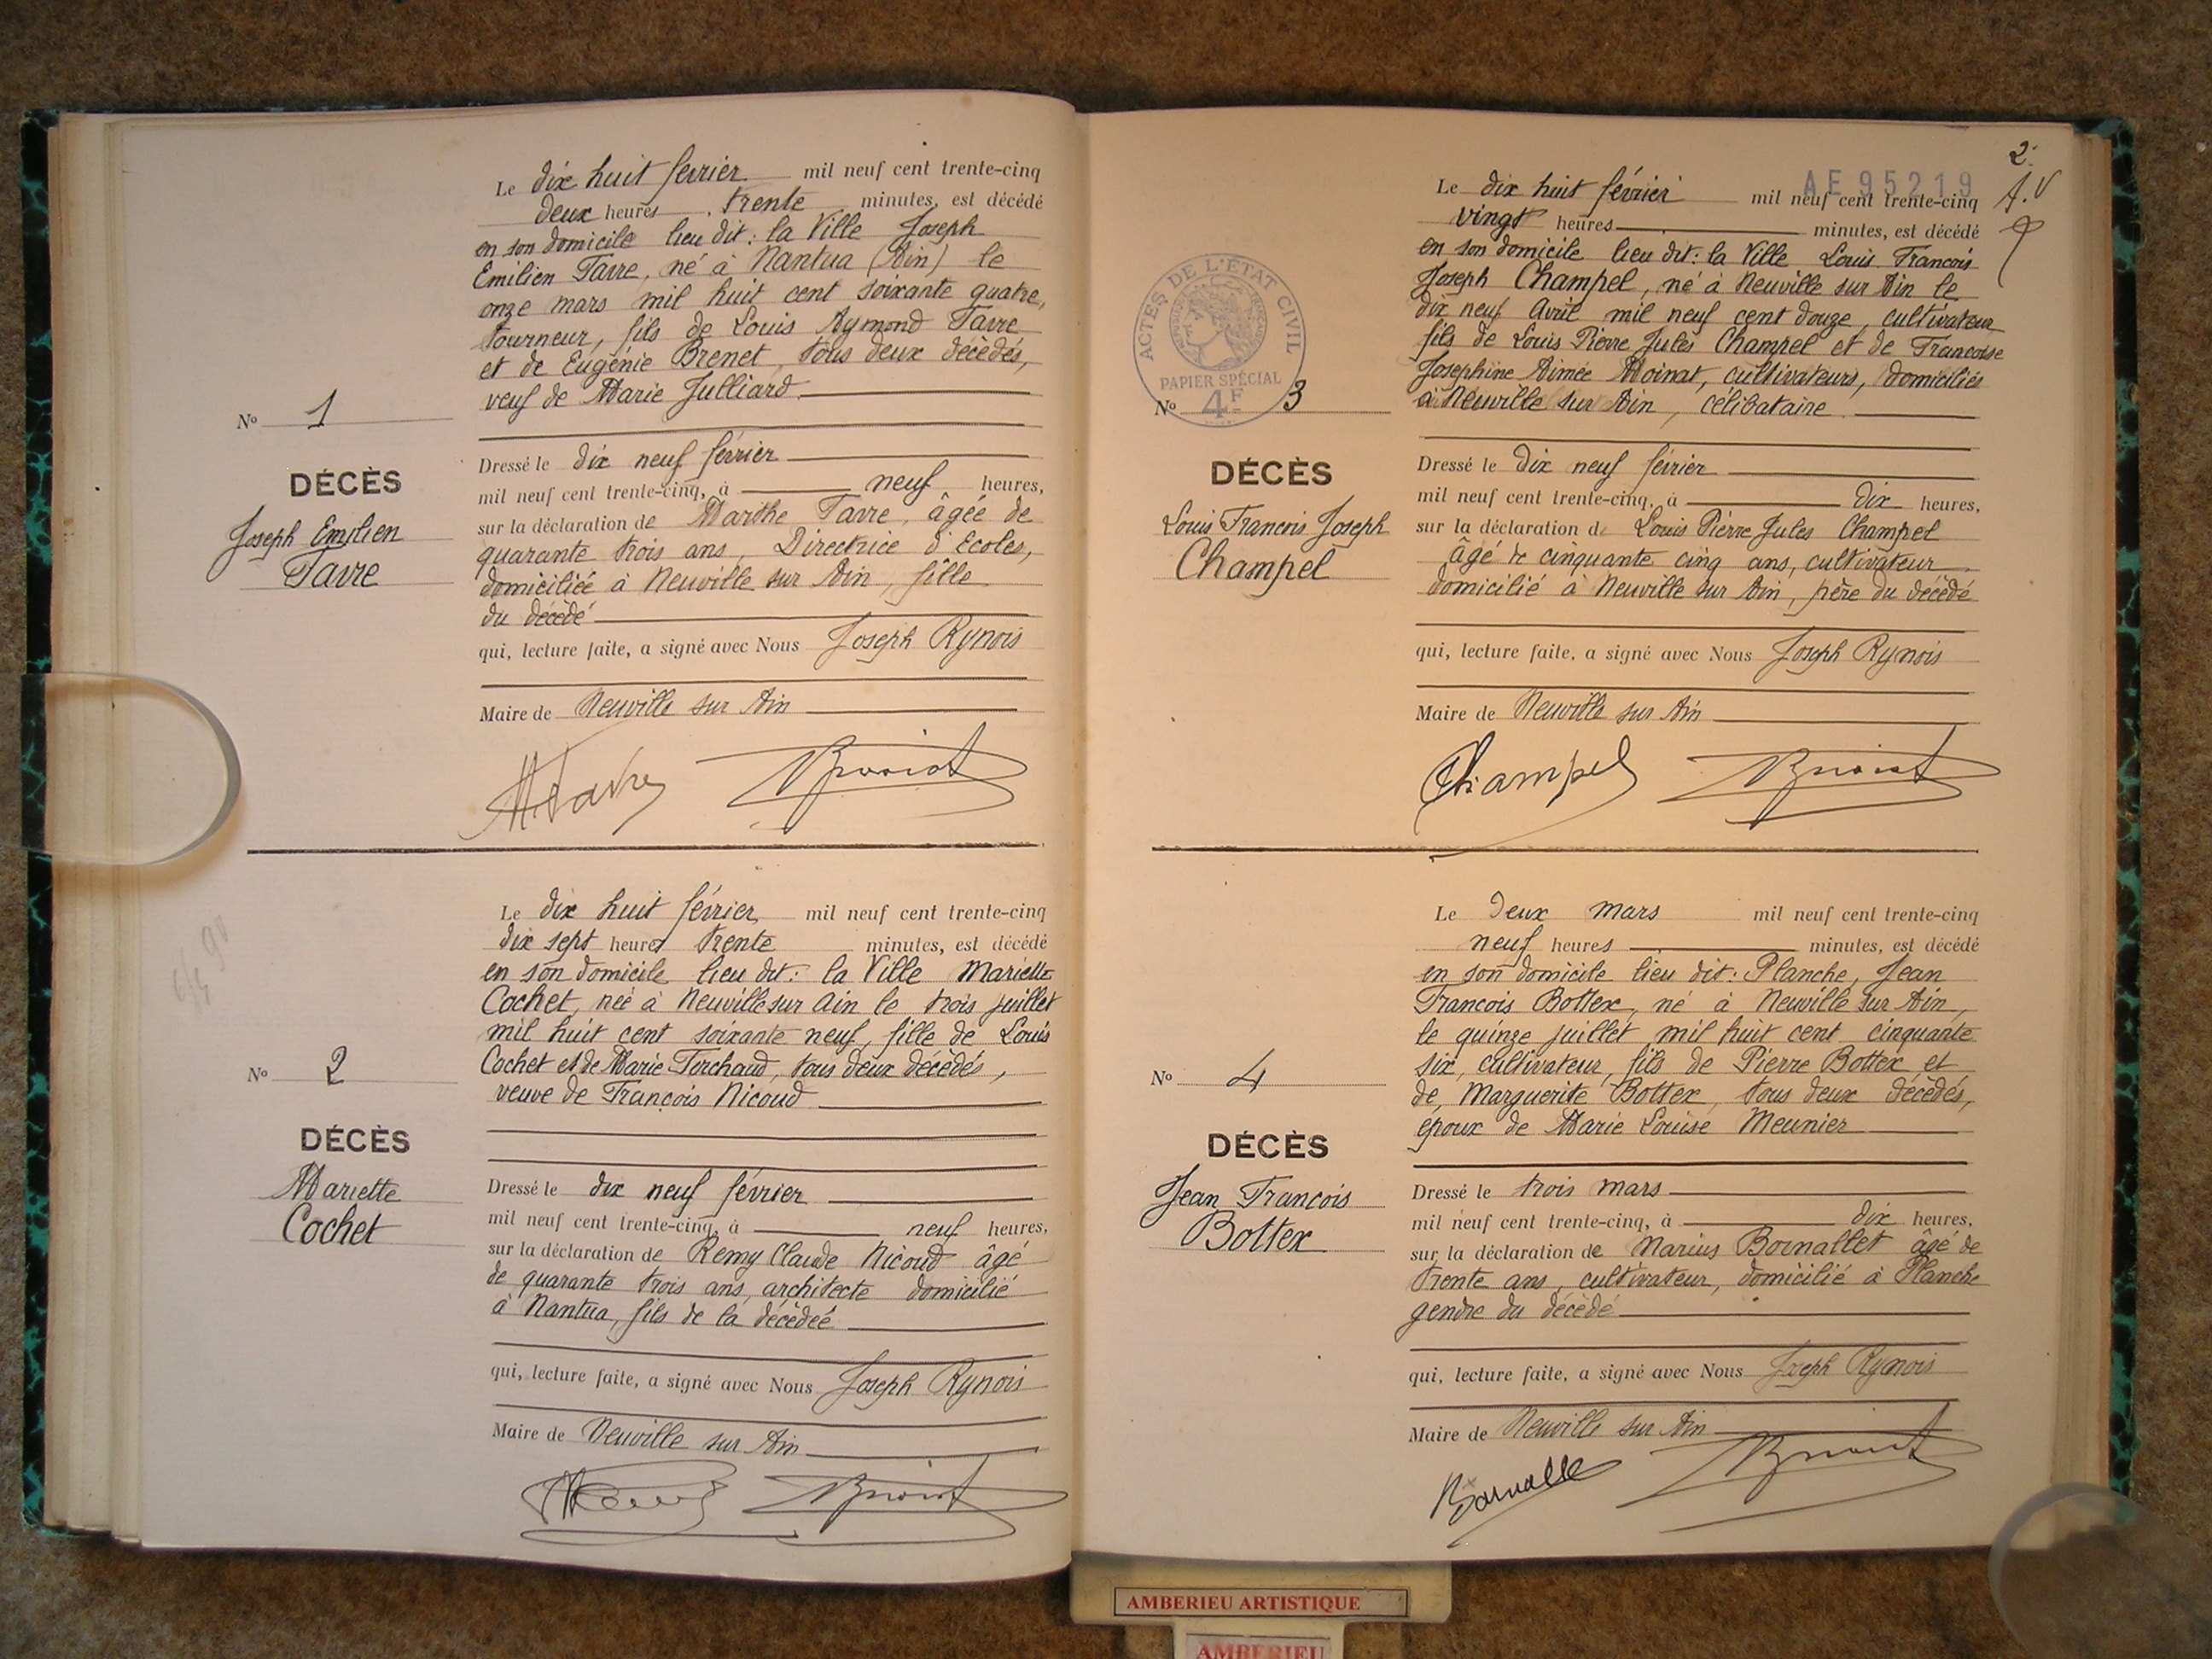 Le dix huit février mil neuf cent trente-cinq
deux heures trente minutes, est décédé
en son domicile lieu dit: la Ville Joseph
Emilien Favre, né à Nantua (Ain) le
onze mars mil huit cent soixante quatre,
tourneur, fils de Louis Aymond Favre
et de Eugénie Brenet, tous deux décédés,
veuf de Marie Julliard
No 1
DÉCÈS
Joseph Emilien
Favre
Dressé le dix neuf février
mil neuf cent trente-cinq, à neuf heures,
sur la déclaration de Marthe Favre, âgée de
quarante trois ans, Directrice d'Ecoles,
domiciliée à Neuville sur Ain, fille
du décédé
qui, lecture faite, a signé avec Nous Joseph Rynois
Maire de Neuville sur Ain
M. Favre
Le dix huit février mil neuf cent trente-cinq
dix sept heures trente minutes, est décédé
en son domicile lieu dit: la Ville Mariette
Cochet, née à Neuville sur Ain le trois juillet
mil huit cent soixante neuf, fille de Louis
Cochet et de Marie Torchaud, tous deux décédés,
veuve de François Nicoud
No 2
DÉCÈS
Mariette
Cochet
Dressé le dix neuf février
mil neuf cent trente-cinq, à neuf heures,
sur la déclaration de Remy Claude Nicoud âgé
de quarante trois ans, architecte domicilié
à Nantua, fils de la décédée
qui, lecture faite, a signé avec Nous Joseph Rynois
Maire de Neuville sur Ain
2
A.V
AE95219
Le dix huit février mil neuf cent trente-cinq
vingt heures minutes, est décédé
en son domicile lieu dit: la Ville Louis Francois
Joseph Champel, né à Neuville sur Ain le
dix neuf Avril mil neuf cent douze, cultivateur
fils de Louis Pierre Jules Champel et de Francoise
Josephine Aimée Moinat, cultivateurs, domiciliés
à Neuville sur Ain, célibataire
ACTES DE L'ÉTAT CIVIL
PAPIER SPÉCIAL
4F
No 3
DÉCÈS
Louis Francois Joseph
Champel
Dressé le dix neuf février
mil neuf cent trente-cinq, à dix heures,
sur la déclaration de Louis Pierre Jules Champel
âgé de cinquante cinq ans, cultivateur
domicilié à Neuville sur Ain, père du décédé
qui, lecture faite, a signé avec Nous Joseph Rynois
Maire de Neuville sur Ain
Champel
Le deux mars mil neuf cent trente-cinq
neuf heures minutes, est décédé
en son domicile lieu dit: Planche, Jean
Francois Bottex, né à Neuville sur Ain,
le quinze juillet mil huit cent cinquante
six, cultivateur, fils de Pierre Bottex et
de, Marguerite Bottex, tous deux décédés,
époux de Marie Louise Meunier
No 4
DÉCÈS
Jean Francois
Bottex
Dressé le trois mars
mil neuf cent trente-cinq, à dix heures,
sur la déclaration de Marius Bornallet âgé de
trente ans, cultivateur, domicilié à Planche
gendre du décédé
qui, lecture faite, a signé avec Nous Joseph Rynois
Maire de Neuville sur Ain
AMBERIEU ARTISTIQUE
AMBERIEU